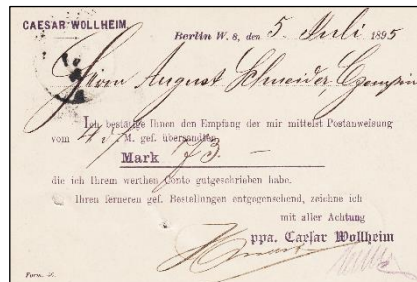 CAESAR WOLLHEIM.
Berlin W. 8, den 5. Juli 1895
Herrn August Schneider-Czempin
Ich bestätige Ihnen den Empfang der mir mittelst Postanweisung
vom 4 d. M. gef. übersandten
Mark 73.—
die ich Ihrem werthen Conto gutgeschrieben habe.
Ihren ferneren gef. Bestellungen entgegensehend, zeichne ich
mit aller Achtung
ppa. Caesar Wollheim
Form.